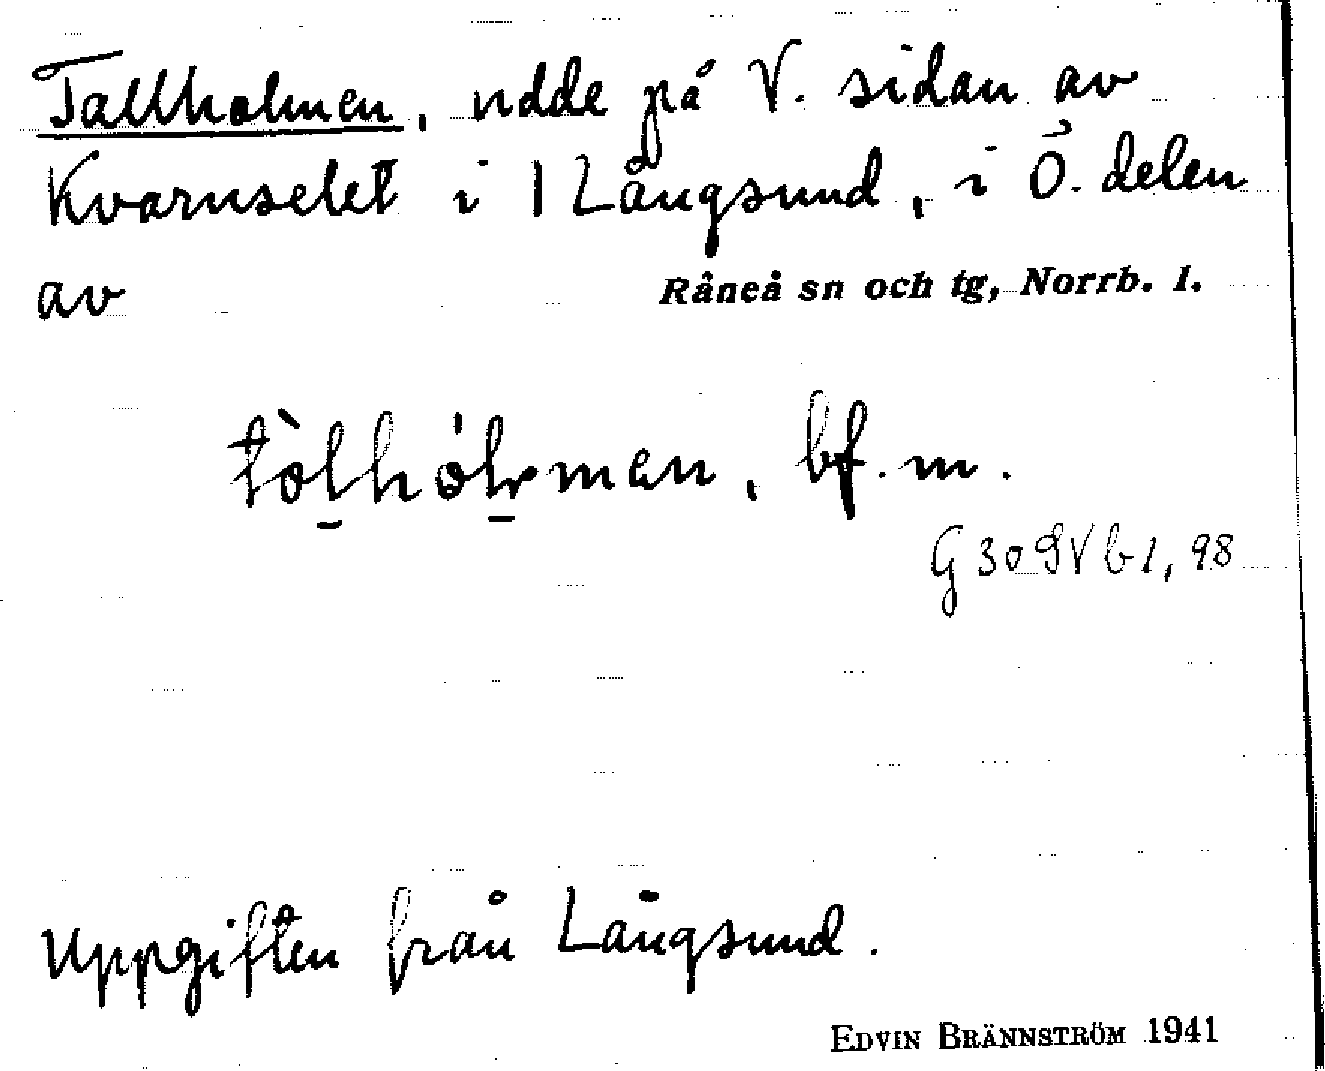 Tallholmen, udde på V. sidan av
Kvarnselet i 1 Långsund, i Ö. delen
av Råneå sn och tg, Norrb. l.
bf. m.
G309Vb1, 98
Uppgiften från Långsund.
EDVIN BRÄNNSTRÖM 1941